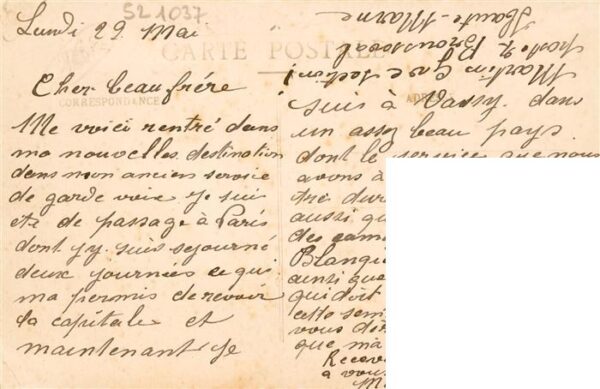 S21037
Lundi 29 Mai
CARTE POSTALE
Cher beaufrére
CORRESPONDANCE
Me voici rentré dans
ma nouvelles destination
dans mon ancien service
de garde voie je suis
été de passage à Paris
dont j'y suis sejourné
deux journées ce qui
ma permis de revoir
la capitale et
maintenant je
suis à Vassy dans
un assez beau pays
dont le service que nous
avons à
aussi qu
des cam
Blanqu
ainsi que
qui doit
cette sem
vous di
que ma
Recev
a vous
M
Martin
poste 2 Brousseval
Haute-Marne